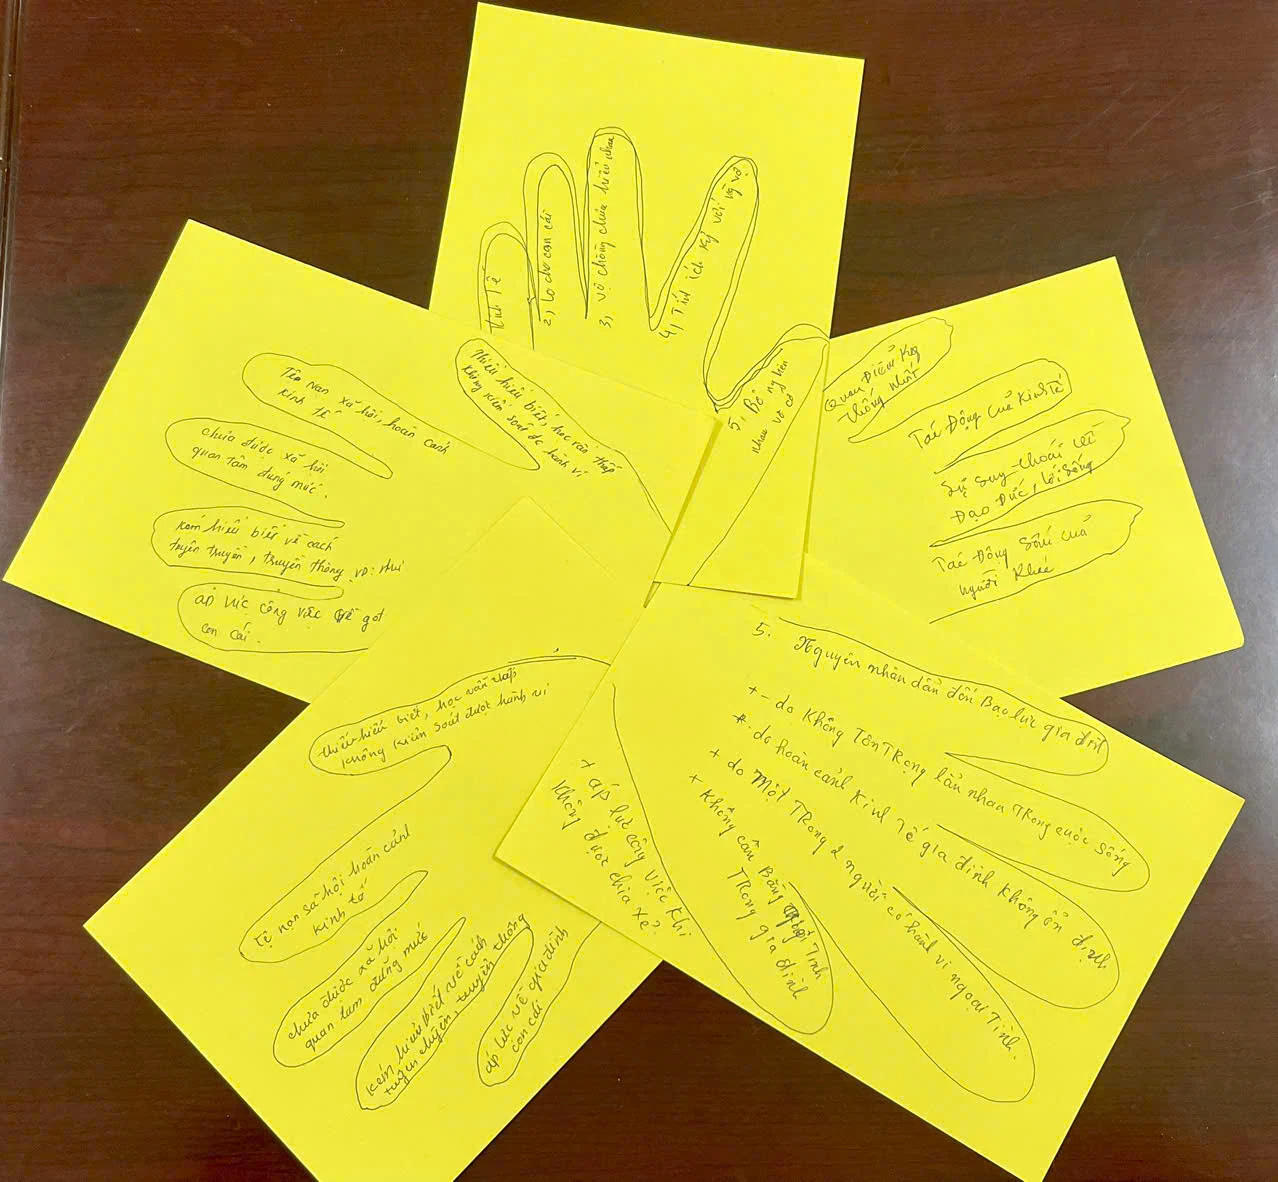 Kinh tế
2, Lo cho con cái
3, vợ chồng chưa hiểu nhau
4, Tính ích kỷ với
5, Bố mẹ bên
nhau vô cớ
Thiếu hiểu biết, học vấn thấp
không kiểm soát đc hành vi
Tệ nạn xã hội, hoàn cảnh
kinh tế
chưa được xã hội
quan tâm đúng mức.
kém hiểu biết về cách
tuyên truyền, truyền thông
áp lực công việc
con cái.
Quan Điểm Kg
thống nhất
Tác Động Của Kinh Tế
Sự Suy-thoái về
Đạo Đức, lối sống
Tác Động Của
người khác
thiếu hiểu biết, học vấn thấp
không kiểm soát được hành vi
tệ nạn xã hội hoàn cảnh
kinh tế
chưa được xã hội
quan tâm đúng mức
kém hiểu biết về cách
tuyên truyền, truyền thông
áp lực về gia đình
con cái
5. Nguyên nhân dẫn đến Bạo lực gia đình
+ - do không Tôn Trọng lẫn nhau Trong cuộc sống
+ - do hoàn cảnh Kinh Tế gia đình không ổn định
+ do Một Trong 2 người có hành vi ngoại Tình.
+ Không cân Bằng giới Tính
Trong gia đình
+ áp lực công việc khi
không được chia xẻ?